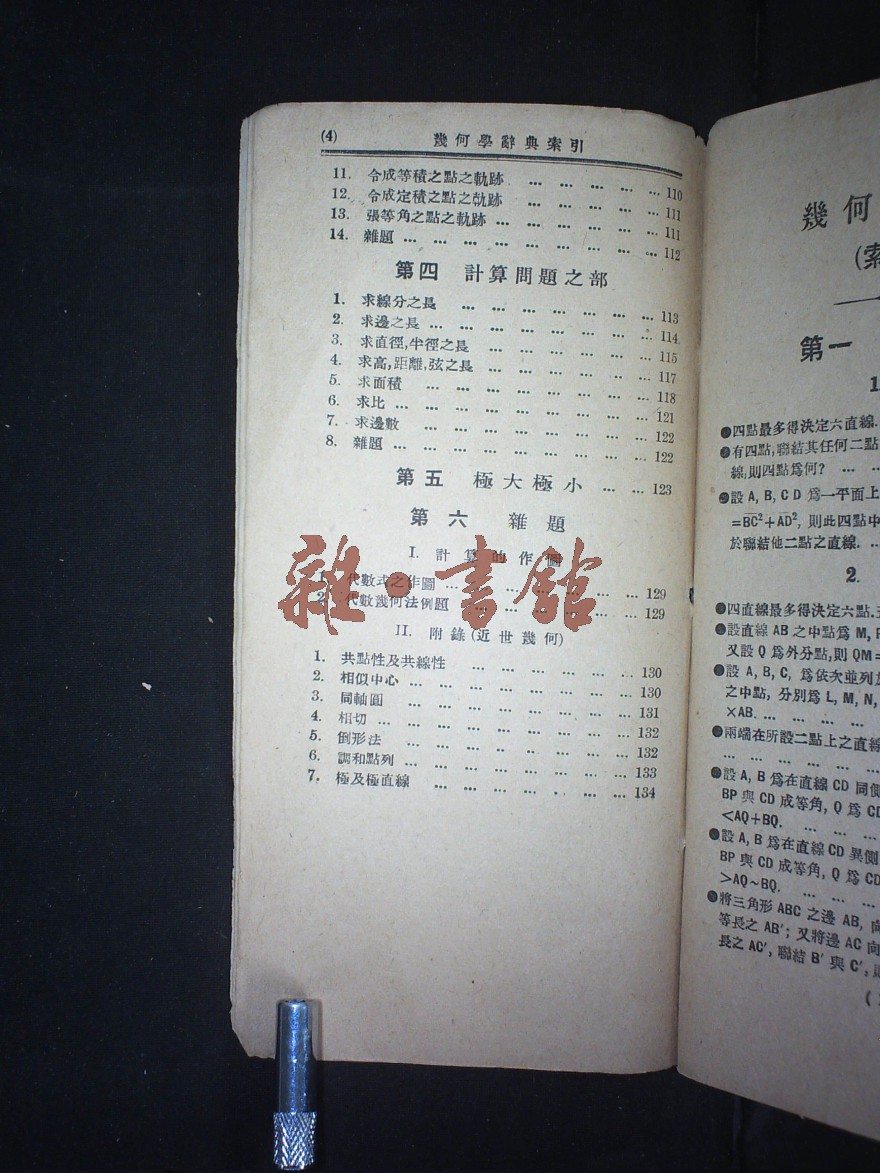 (4) 幾何學辭典索引
11. 令成等積之點之軌跡 … … … … … 110
12. 令成定積之點之軌跡 … … … … … 111
13. 張等角之點之軌跡 … … … … … … 111
14. 雜題 … … … … … … … … … … 112
第四 計算問題之部
1. 求線分之長 … … … … … … … 113
2. 求邊之長 … … … … … … … … 114
3. 求直徑,半徑之長 … … … … … … 115
4. 求高,距離,弦之長 … … … … … … 117
5. 求面積 … … … … … … … … 118
6. 求比 … … … … … … … … … 121
7. 求邊數 … … … … … … … … 122
8. 雜題 … … … … … … … … … 122
第五 極大極小 … … … 123
第六 雜題
I. 計算的作圖
1. 代數式之作圖 … … … … … … … 129
2. 代數幾何法例題 … … … … … … 129
II. 附錄(近世幾何)
1. 共點性及共線性 … … … … … … 130
2. 相似中心 … … … … … … … … 130
3. 同軸圓 … … … … … … … … 131
4. 相切 … … … … … … … … … 132
5. 倒形法 … … … … … … … … 132
6. 調和點列 … … … … … … … … 133
7. 極及極直線 … … … … … … … 134
雜·書館
幾何
(索
第一
1.
●四點最多得決定六直線.
●有四點,聯結其任何二點
線,則四點爲何? … …
●設 A, B, C D 爲一平面上
=BC²+AD², 則此四點中
於聯結他二點之直線. …
2.
●四直線最多得決定六點.
●設直線 AB 之中點爲 M, P
又設 Q 爲外分點,則 QM=
●設 A, B, C, 爲依次並列
之中點, 分別爲 L, M, N,
×AB. … … … …
●兩端在所設二點上之直線
… … … … …
●設 A, B 爲在直線 CD 同側
BP 與 CD 成等角, Q 爲 CD
<AQ+BQ. … … …
●設 A, B 爲在直線 CD 異側
BP 與 CD 成等角, Q 爲 CD
>AQ~BQ. … … …
●將三角形 ABC 之邊 AB, 向
等長之 AB′; 又將邊 AC 向
長之 AC′, 聯結 B′ 與 C′,